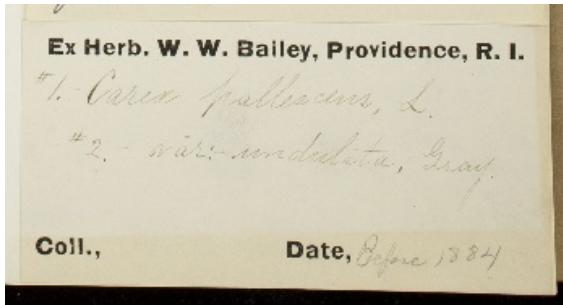 Ex Herb. W. W. Bailey, Providence, R. I.
#1.- Carex pallescens, L.
#2.- var.- undulata, Gray.
Coll., Date, Before 1884